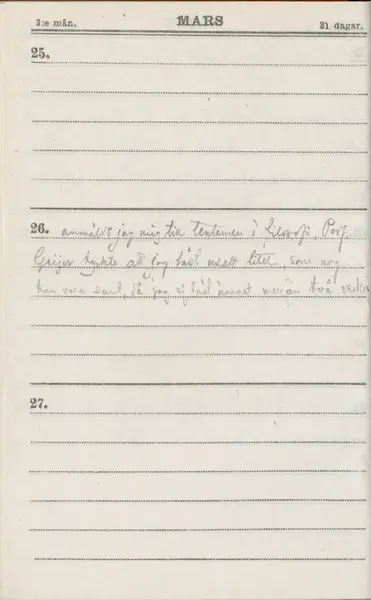 3:e mån.
MARS
31 dagar.
25.
26. anmälde jag mig till tentamen i filosofi. Prof.
Geijer tyckte att jag läst litet, som nog
kan vara sant, då jag ej läst ämnet mer än två veckor
27.